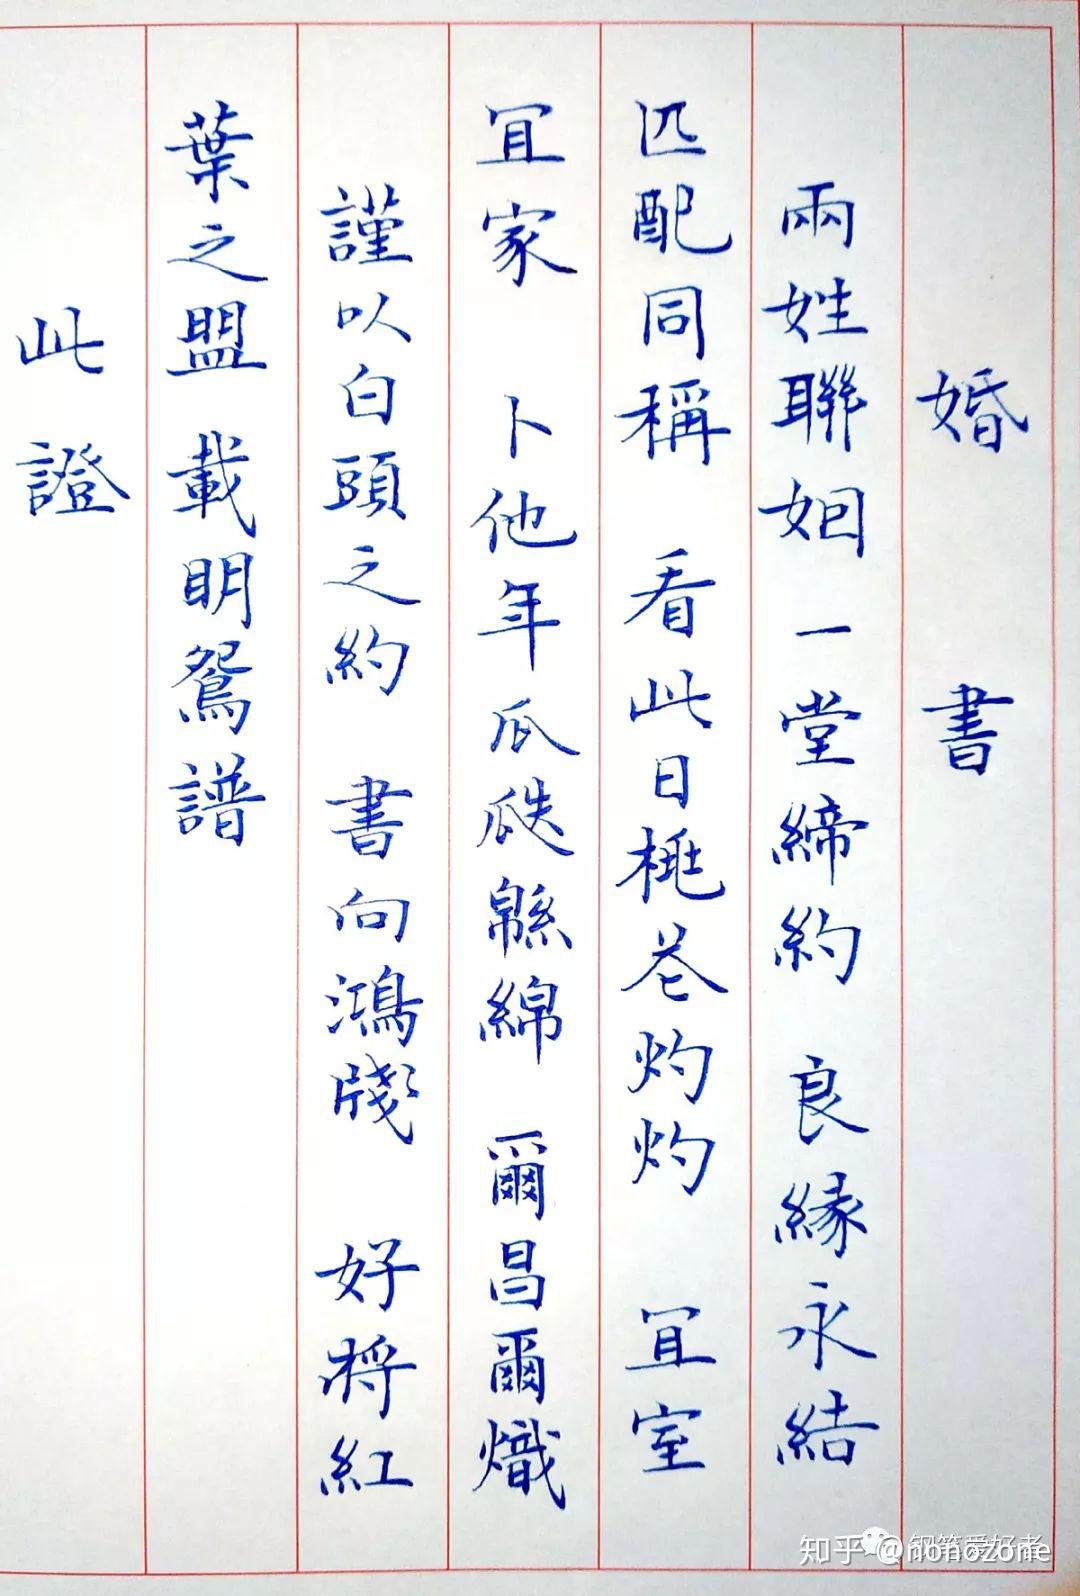 婚 書
兩姓聯姻 一堂締約 良緣永結
匹配同稱 看此日桃花灼灼 宜室
宜家 卜他年瓜瓞緜綿 爾昌爾熾
謹以白頭之約 書向鴻牋 好將紅
葉之盟 載明鴛譜
此證
知乎 @nonozone
钢笔爱好者